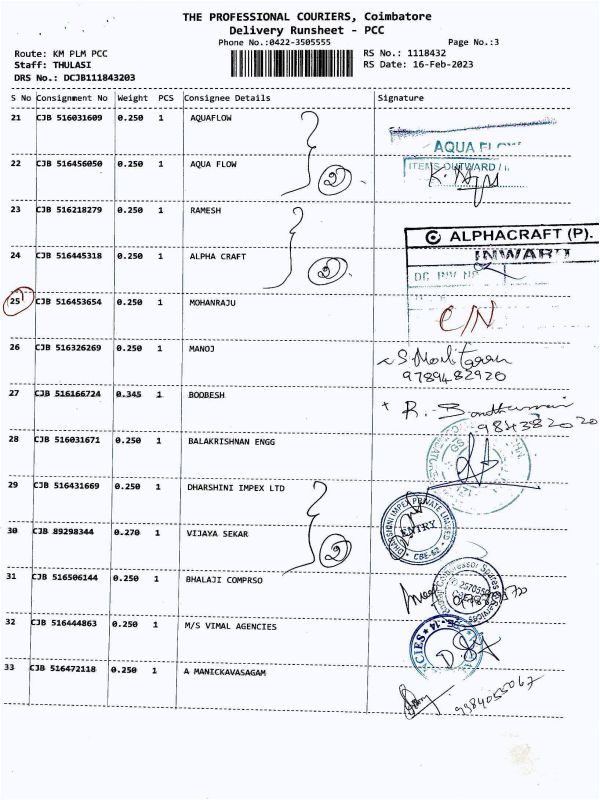 THE PROFESSIONAL COURIERS, Coimbatore
Delivery Runsheet - PCC
Phone No.:0422-3505555 Page No.:3
Route: KM PLM PCC RS No.: 1118432
Staff: THULASI RS Date: 16-Feb-2023
DRS No.: DCJB111843203
S No Consignment No Weight PCS Consignee Details Signature
21 CJB 516031609 0.250 1 AQUAFLOW
AQUA FLOW
22 CJB 516456050 0.250 1 AQUA FLOW 2 ITEMS OUTWARD /
23 CJB 516218279 0.250 1 RAMESH
ALPHACRAFT (P).
24 CJB 516445318 0.250 1 ALPHA CRAFT 2 INWARD
25 CJB 516453654 0.250 1 MOHANRAJU C/N
26 CJB 516326269 0.250 1 MANOJ
9789482920
27 CJB 516166724 0.345 1 BOOBESH R.
984382020
28 CJB 516031671 0.250 1 BALAKRISHNAN ENGG
29 CJB 516431669 0.250 1 DHARSHINI IMPEX LTD
30 CJB 89298344 0.270 1 VIJAYA SEKAR 2 ENTRY
CBE-62
31 CJB 516506144 0.250 1 BHALAJI COMPRSO
32 CJB 516444863 0.250 1 M/S VIMAL AGENCIES
33 CJB 516472118 0.250 1 A MANICKAVASAGAM 9984055067